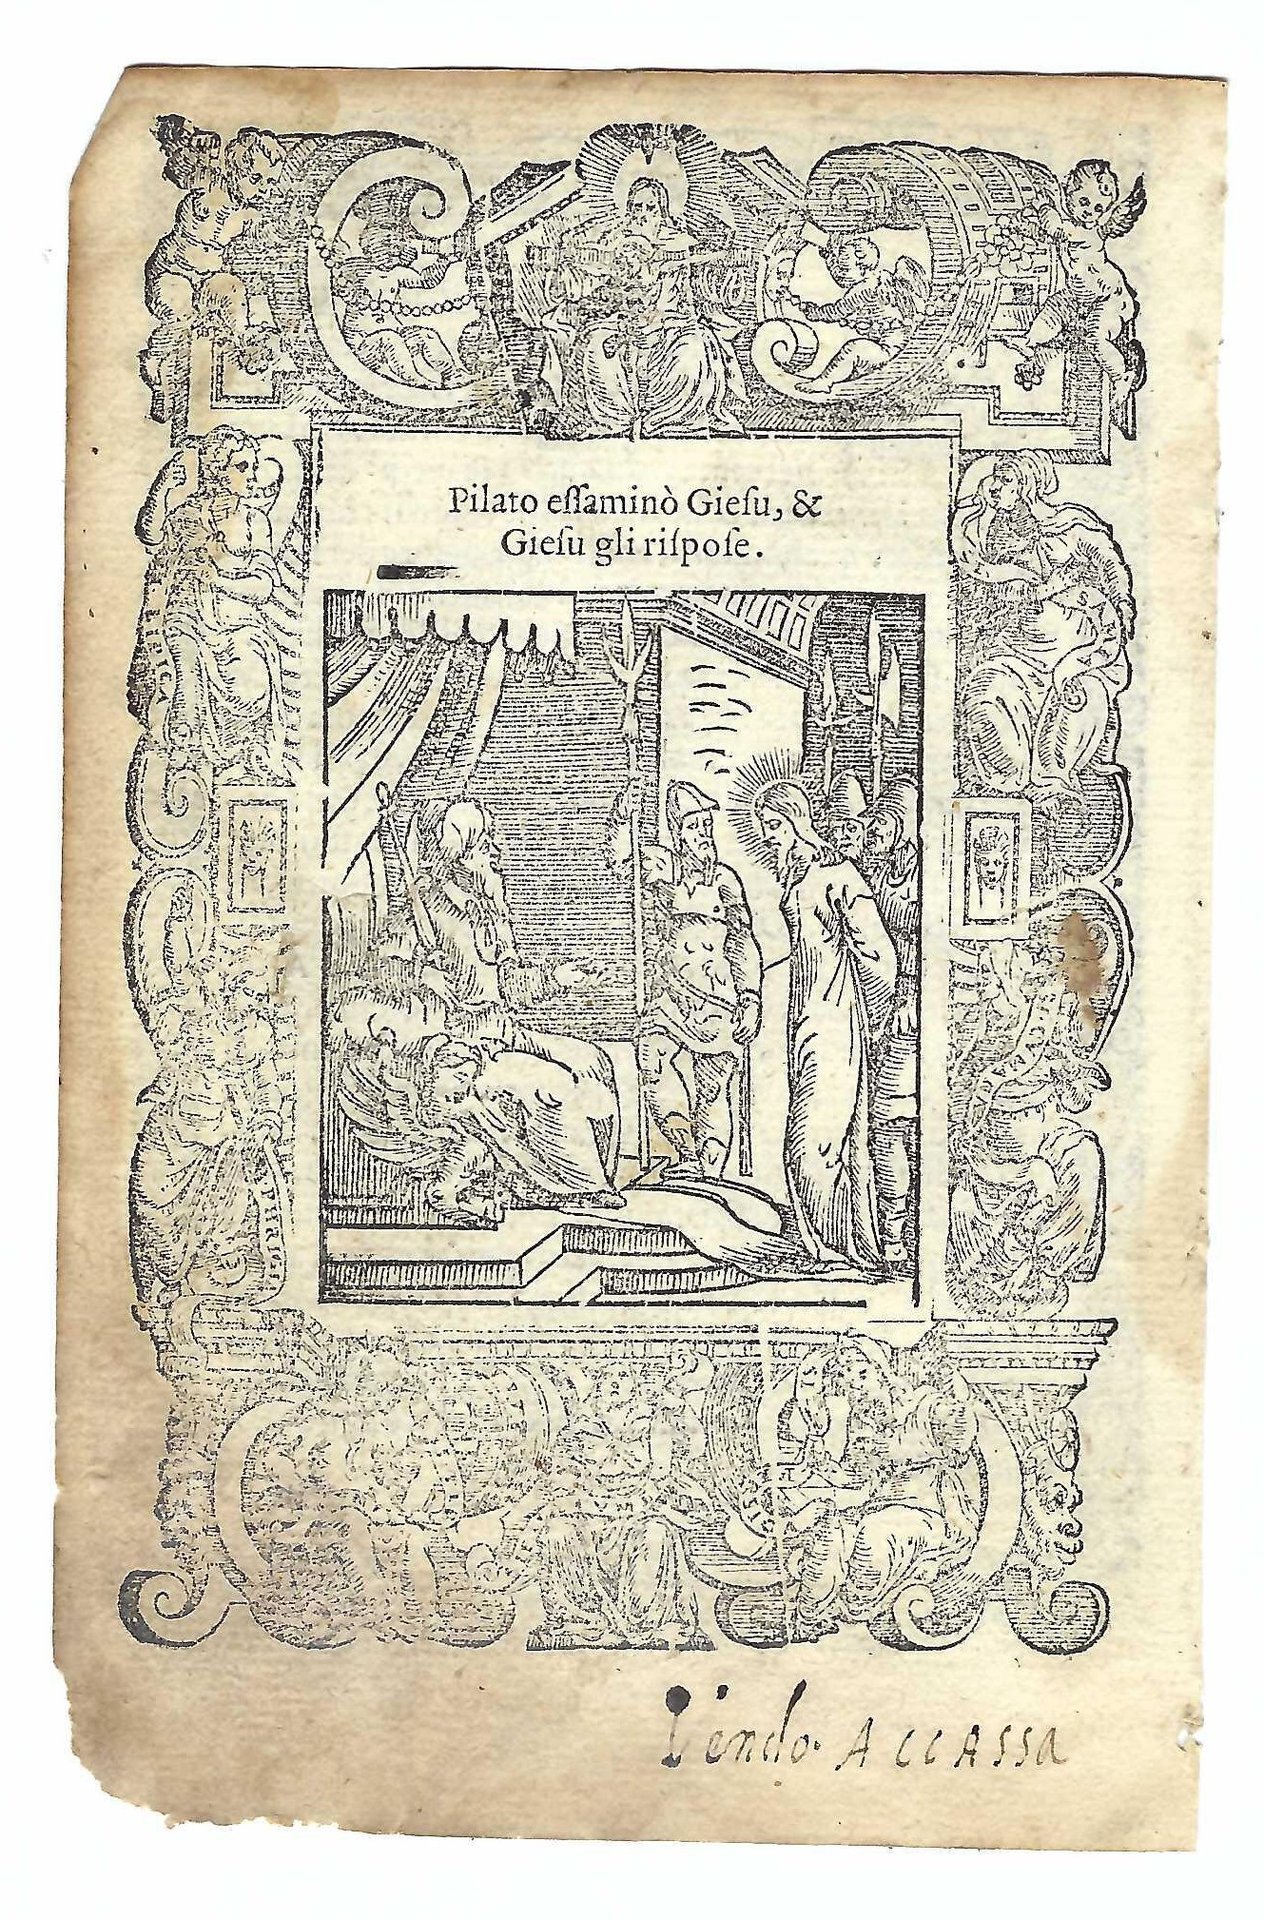 Pilato eſſaminò Gieſu, &
Gieſu gli riſpoſe.
SAMIA
APHRI
Vendo. ACCASSA